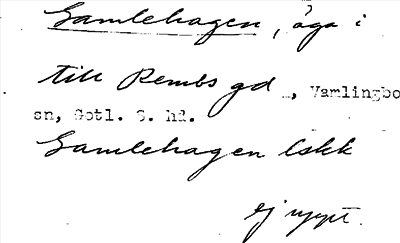 Gamlehagen, äga i
till Rembs gd , Vamlingbo
sn, Gotl. S. hd.
Gamlehagen Eskk
ej uppt.